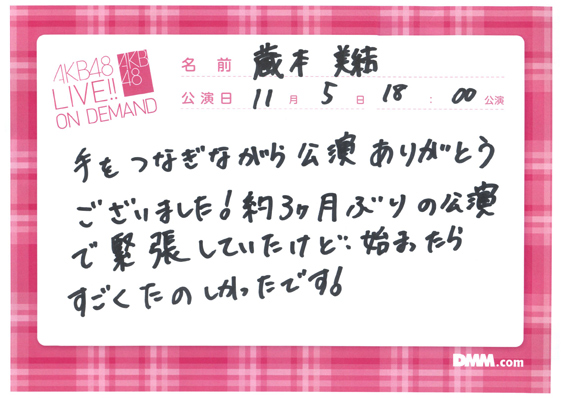 AKB48
LIVE!!
ON DEMAND
AKB
48
名前 蔵本 美結
公演日 11月 5日 18:00公演
手をつなぎながら公演ありがとう
ございました!約3ヶ月ぶりの公演
で緊張していたけど、始まったら
すごくたのしかったです!
DMM.com